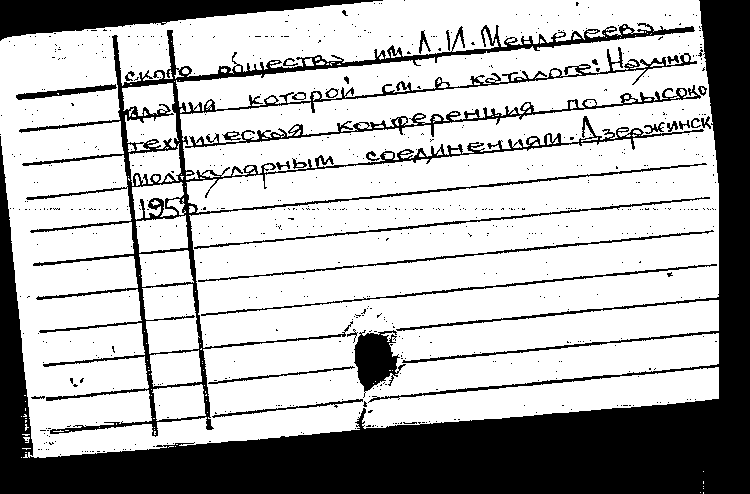 ского общества им. Д.И. Менделеева,
здания которой см. в каталоге: Научно
техническая конференция по высоко
молекулярным соединениям. Дзержинск
1958.